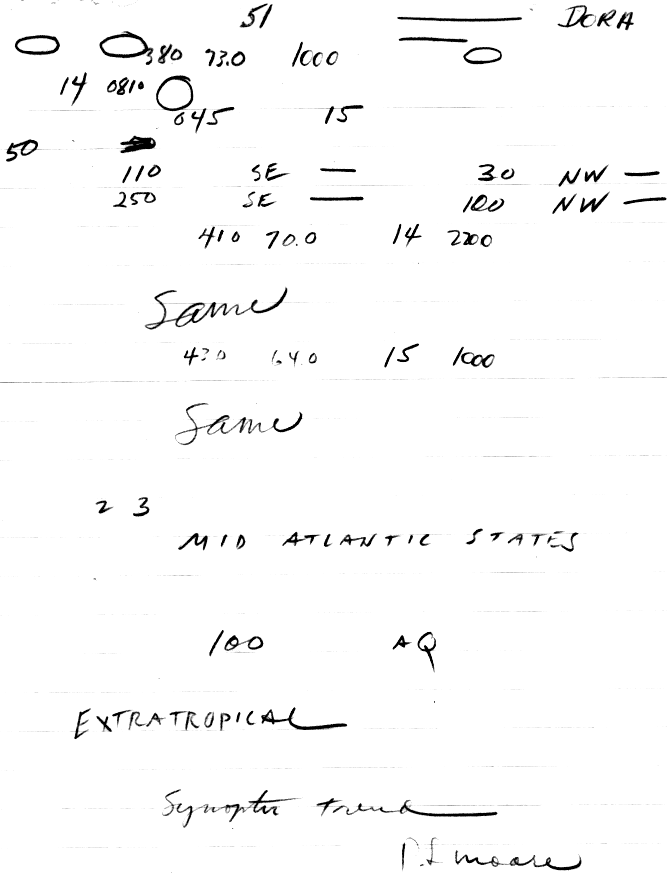 51 DORA
380 73.0 1000
14 0810
045 15
50
110 SE — 30 NW —
250 SE — 100 NW —
410 70.0 14 2200
Same
430 64.0 15 1000
Same
2 3
MID ATLANTIC STATES
100 AQ
EXTRATROPICAL
Synoptic trend
P.L. Moore